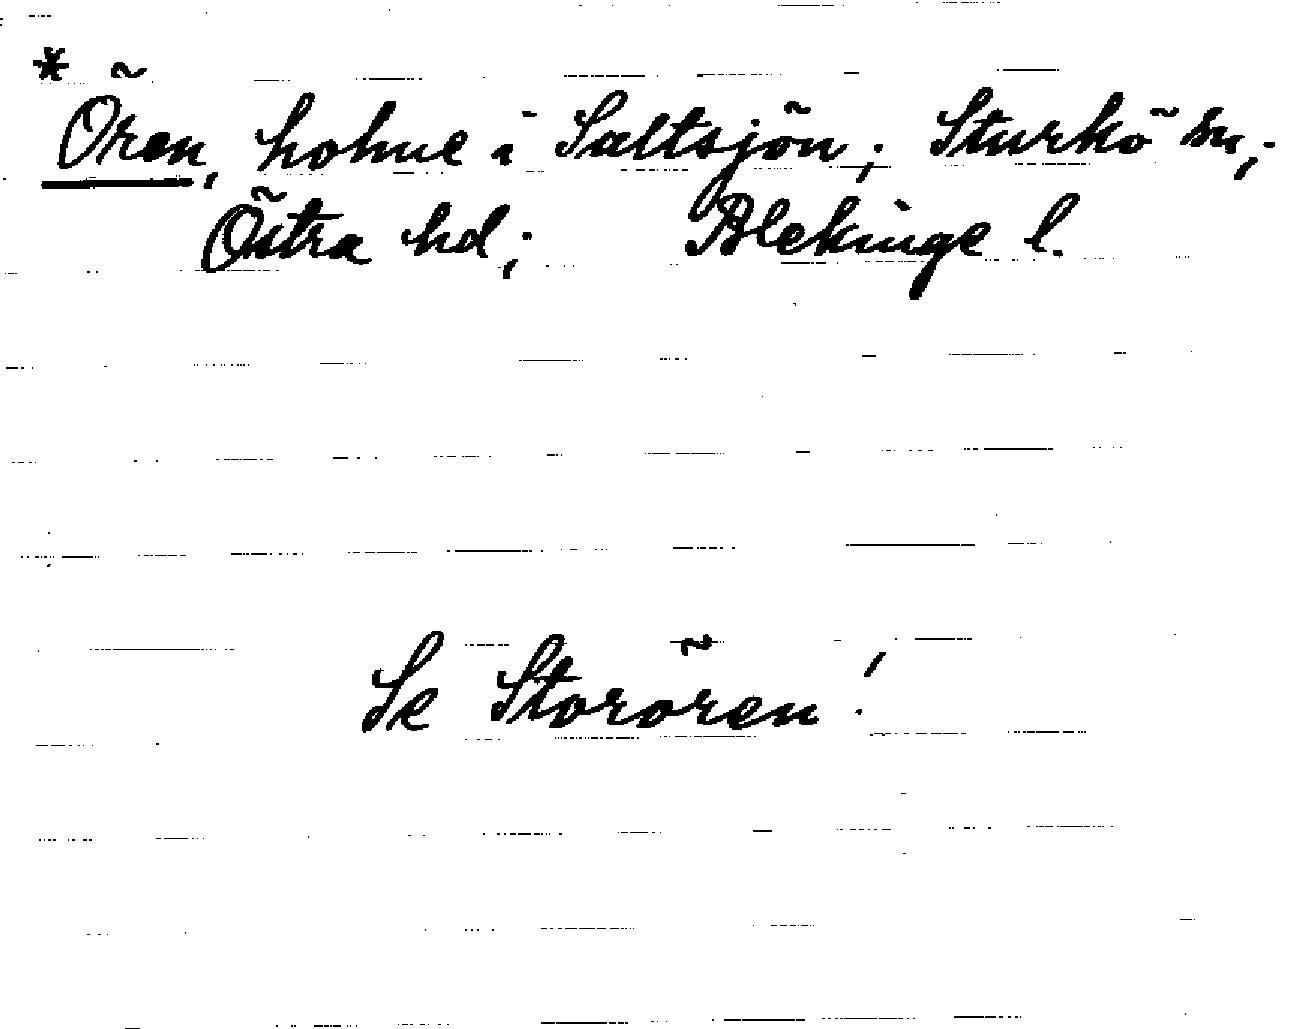 * Ören, holme i Saltsjön; Sturkö sn,;
Östra hd; Blekinge l.
Se Storören!